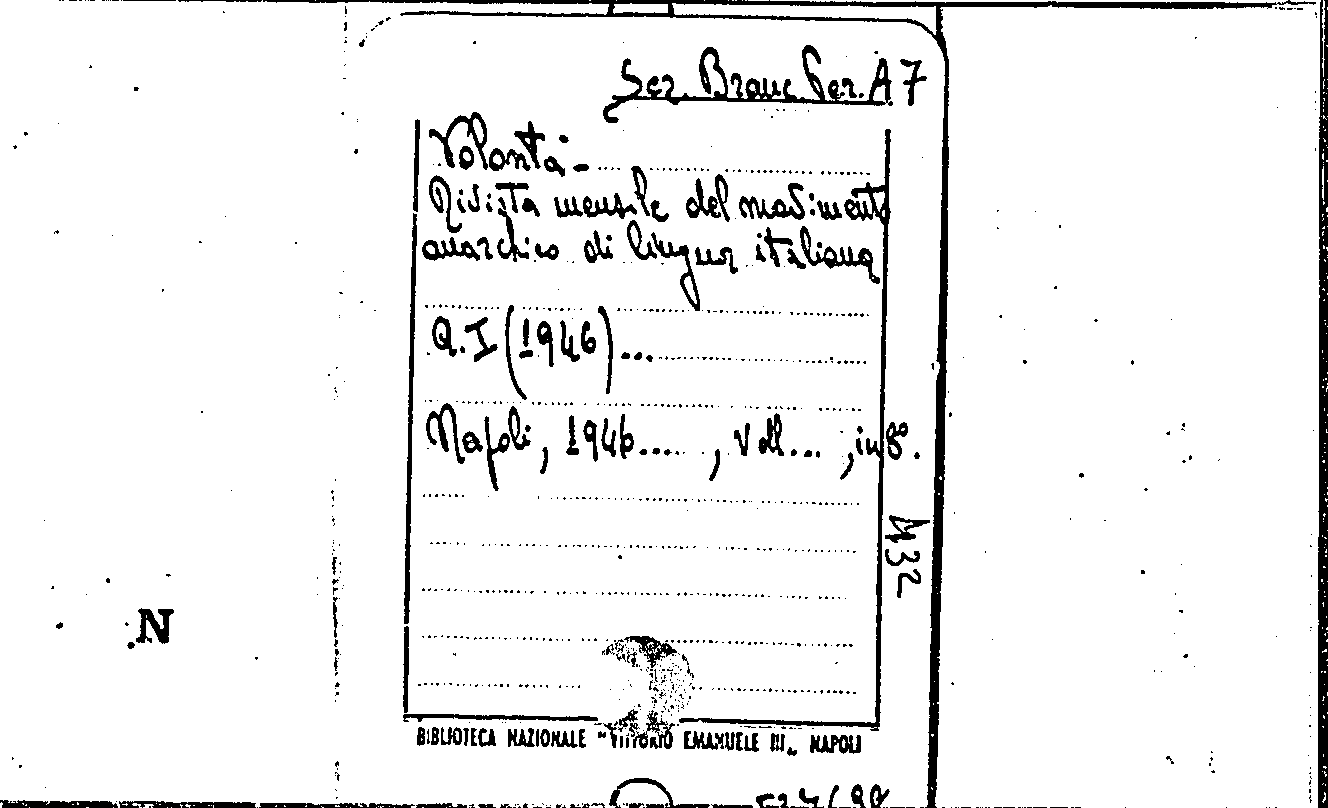 Sez. Branc. Per. A 7
Volontà -
Rivista mensile del movimento
anarchico di lingua italiana
Q. I (1946)...
Napoli, 1946...., voll..., in 8°.
432
N
BIBLIOTECA NAZIONALE "VITTORIO EMANUELE III„ NAPOLI